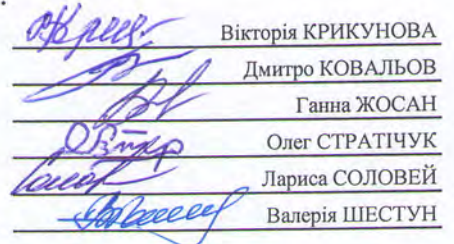 Вікторія КРИКУНОВА
Дмитро КОВАЛЬОВ
Ганна ЖОСАН
Олег СТРАТІЧУК
Лариса СОЛОВЕЙ
Валерія ШЕСТУН